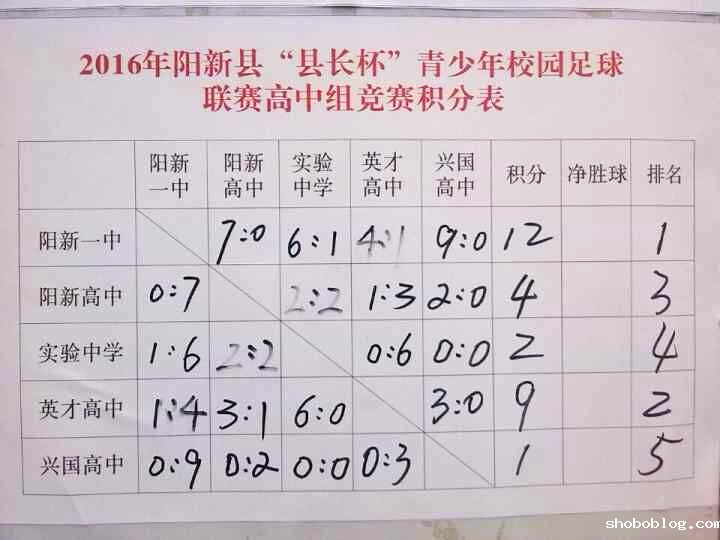 2016年阳新县“县长杯”青少年校园足球
联赛高中组竞赛积分表
阳新一中 阳新高中 实验中学 英才高中 兴国高中 积分 净胜球 排名
阳新一中 7:0 6:1 4:1 9:0 12 1
阳新高中 0:7 2:2 1:3 2:0 4 3
实验中学 1:6 2:2 0:6 0:0 2 4
英才高中 1:4 3:1 6:0 3:0 9 2
兴国高中 0:9 0:2 0:0 0:3 1 5
shoboblog.com